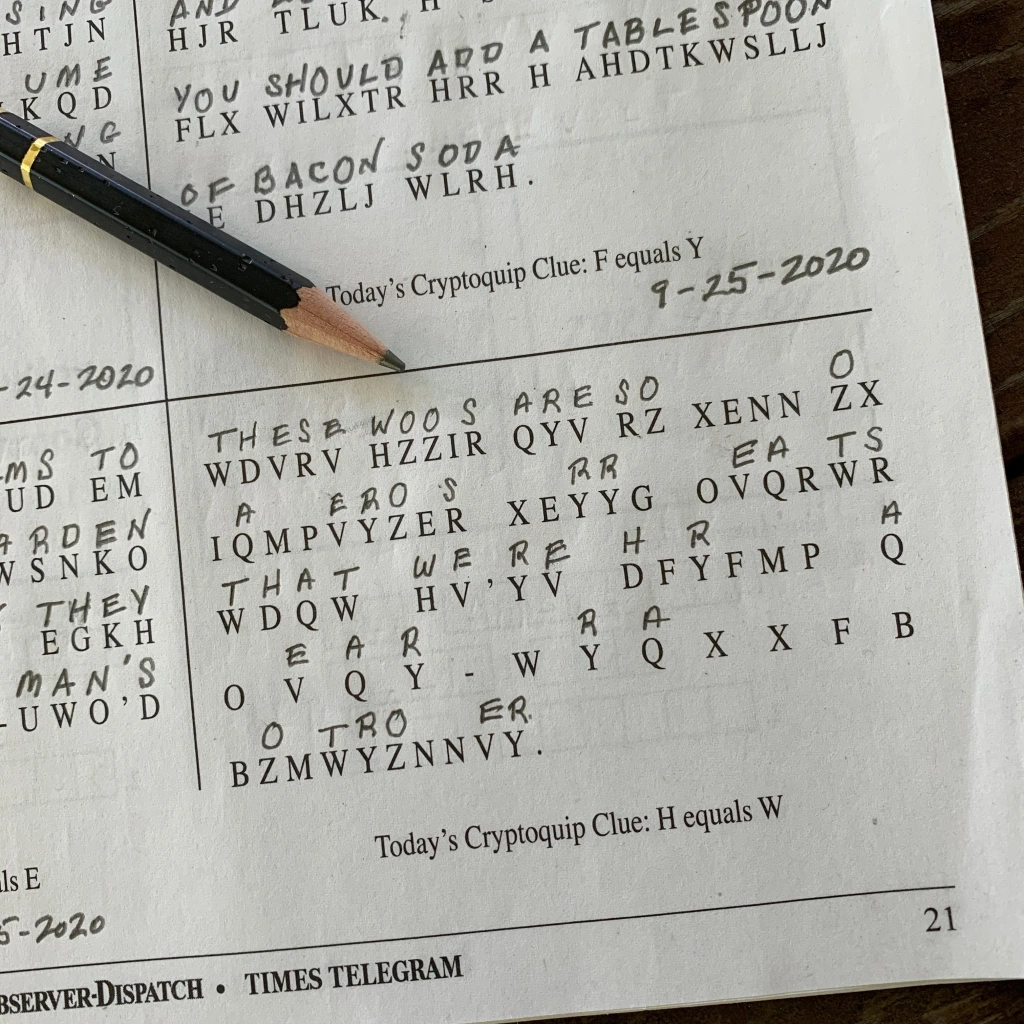 SING
HTJN
UME
KQD
NG
N
-24-2020
MS TO
UD EM
ARDEN
WSNKO
THEY
EGKH
MAN'S
-UWO'D
ls E
5-2020
AND
HJR TLUK. H
YOU SHOULD ADD A TABLESPOON
FLX WILXTR HRR H AHDTKWSLLJ
OF BACON SODA
E DHZLJ WLRH.
Today's Cryptoquip Clue: F equals Y
9-25-2020
THESE WOO S ARE SO O
WDVRV HZZIR QYV RZ XENN ZX
A ERO S RR EA TS
IQMPVYZER XEYYG OVQRWR
THAT WE RE H R A
WDQW HV'YV DFYFMP Q
E A R R A
O V Q Y - W Y Q X X F B
O TRO ER.
BZMWYZNNVY.
Today's Cryptoquip Clue: H equals W
21
BSERVER-DISPATCH • TIMES TELEGRAM